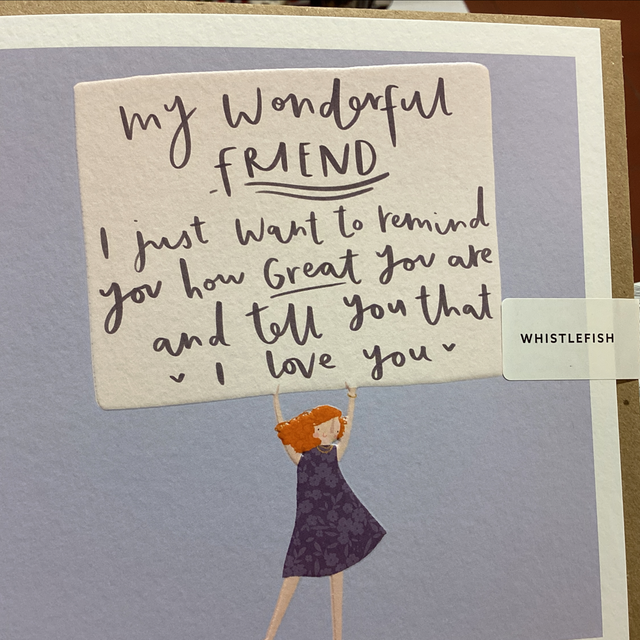 my Wonderful
fRIEND
I just want to remind
you how Great you are
and tell you that
I love you
WHISTLEFISH